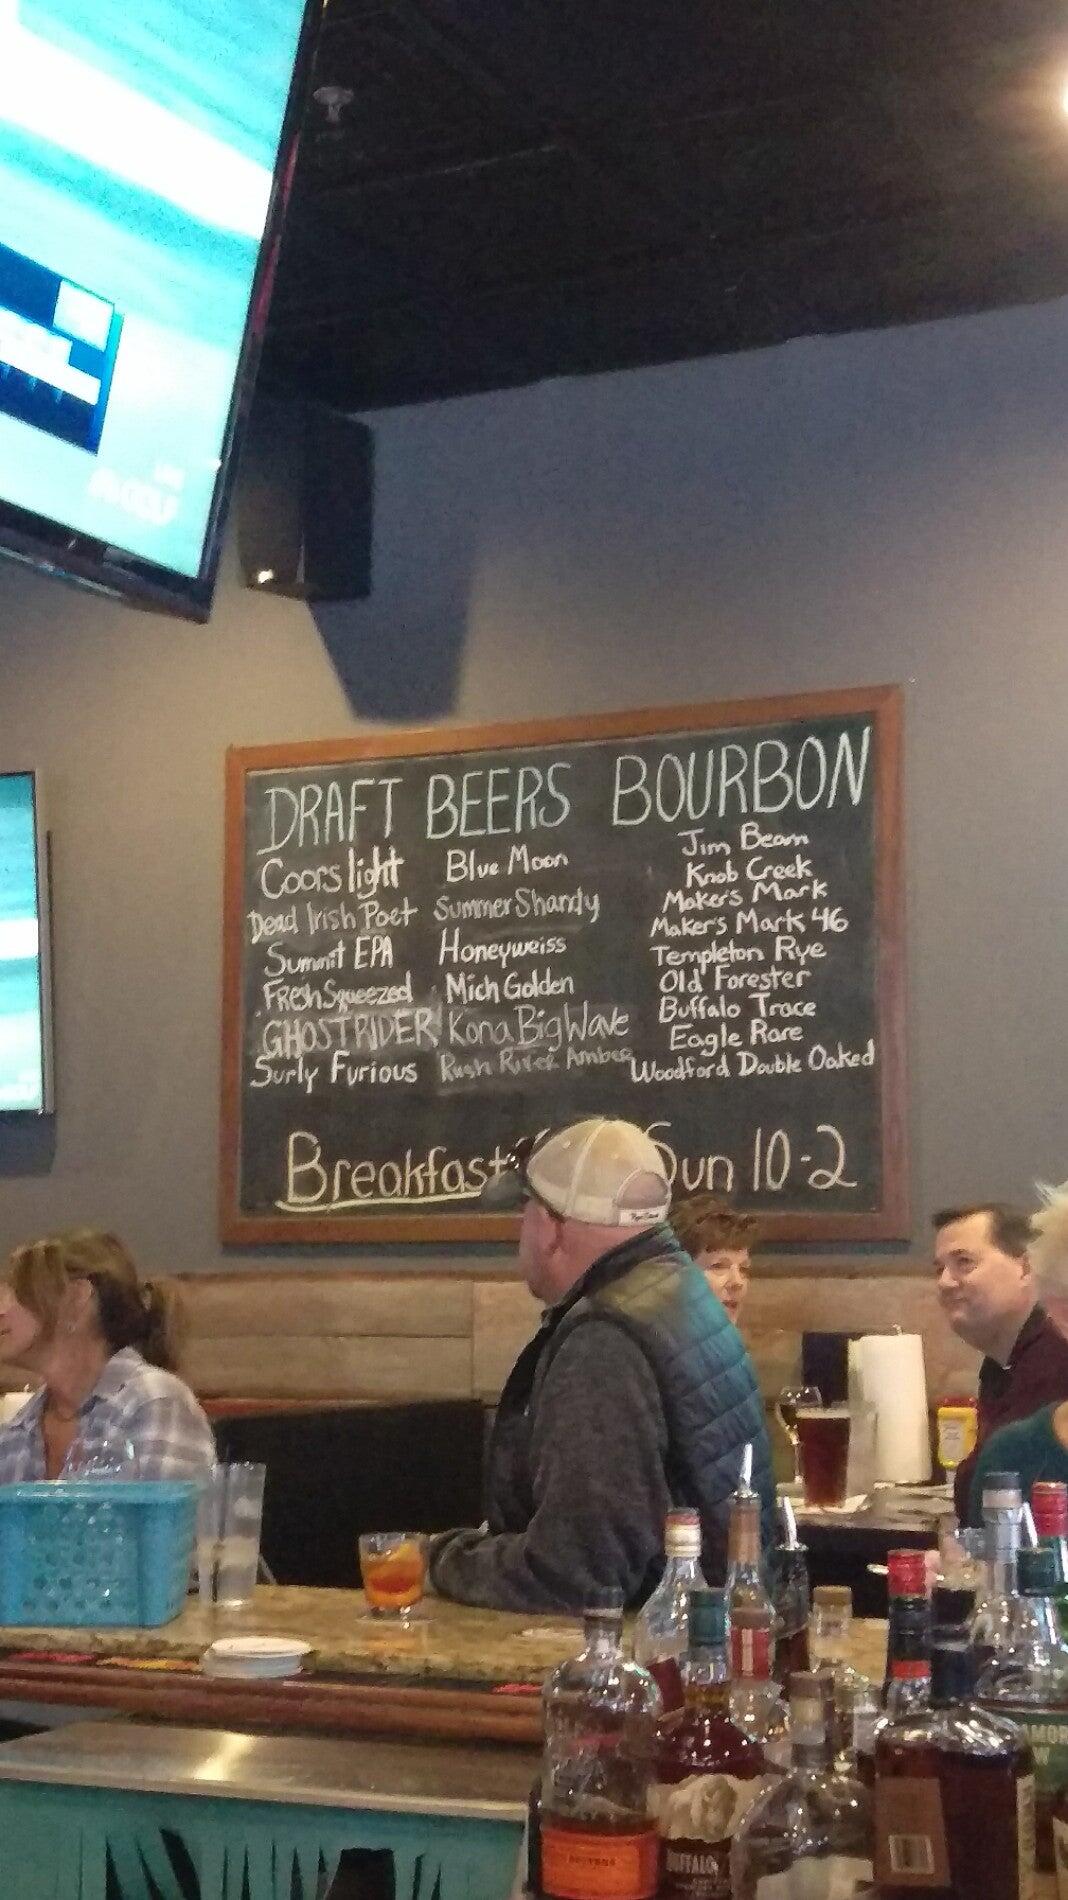 DRAFT BEERS BOURBON
Coors light
Dead Irish Poet
Summit EPA
Fresh Squeezed
GHOSTRIDER
Surly Furious
Blue Moon
Summer Shandy
Honeyweiss
Mich Golden
Kona Big Wave
Rush River Amber
Jim Beam
Knob Creek
Maker's Mark
Maker's Mark 46
Templeton Rye
Old Forester
Buffalo Trace
Eagle Rare
Woodford Double Oaked
Breakfast Sun 10-2